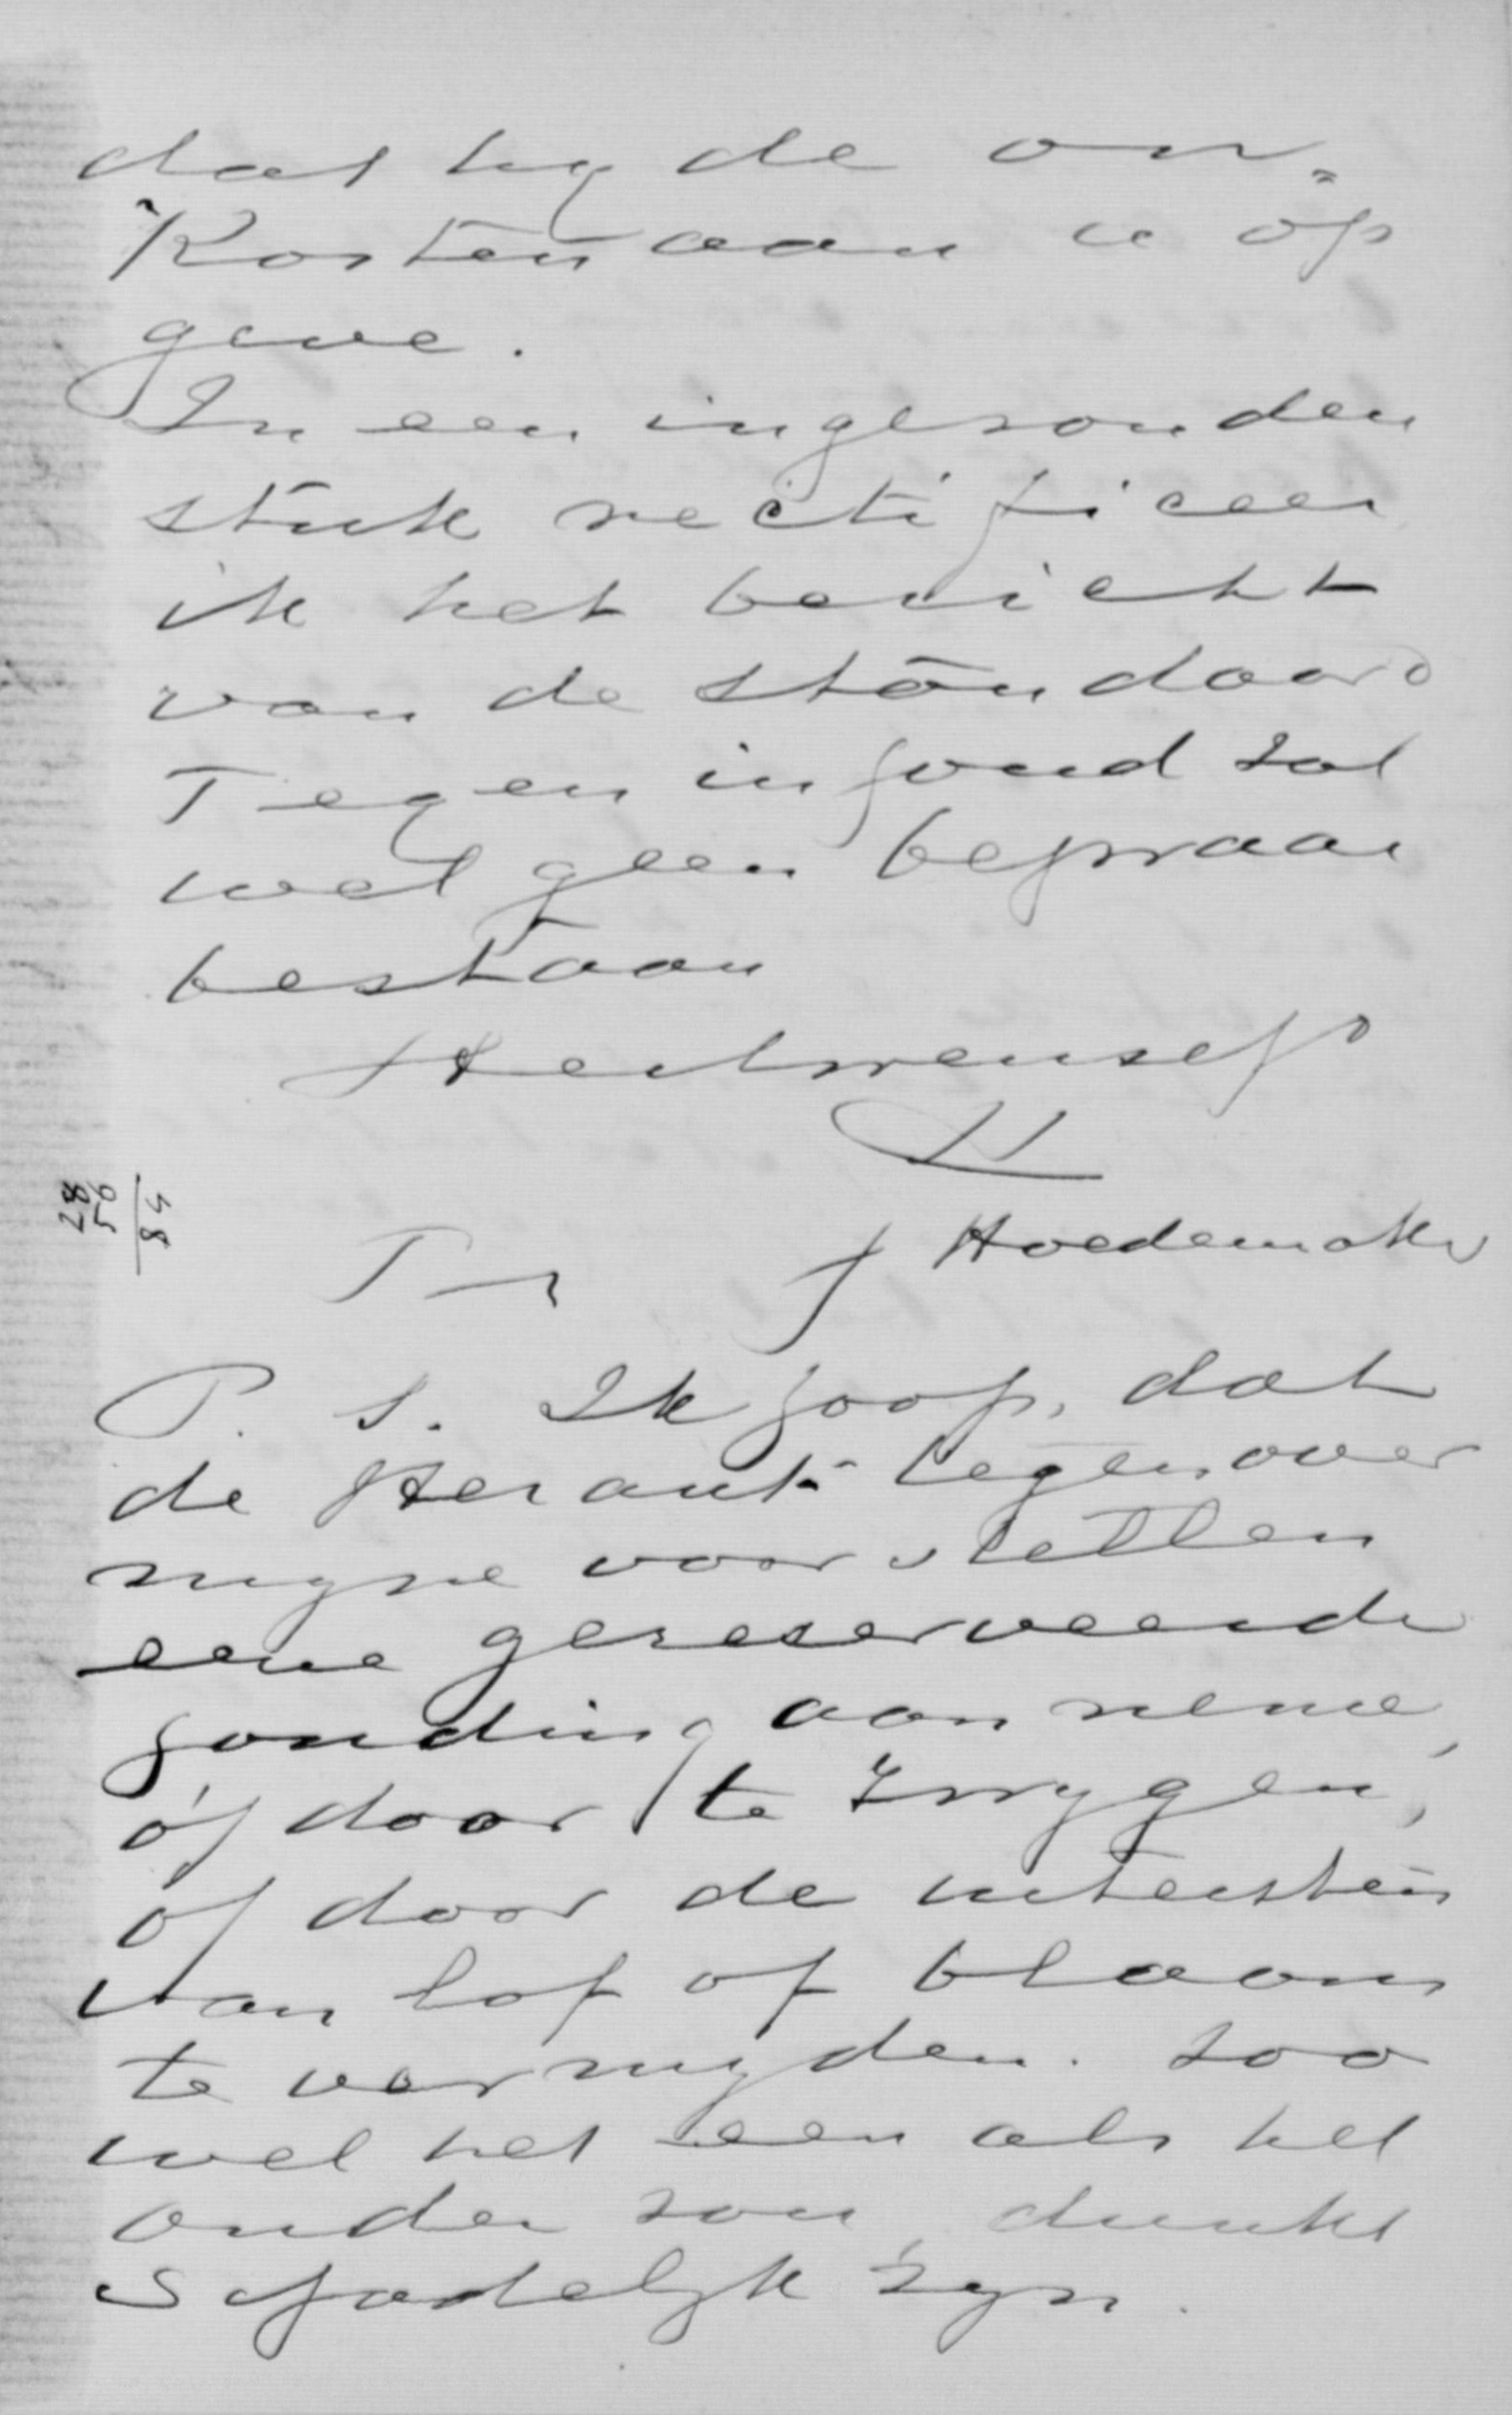 dat hy de on„
kosten aan u op
geve.
In een ingesonden
stuk rectificeer
ik het bericht
van de standaard
Tegen inhoud zal
wel geen bezwaar
bestaan
Heilwensch
Hoedemaker
P. S. Ik hoop, dat
de Heraut tegenover
myne voorstellen
eene gereserveerde
houding aan neme,
óf door te zwygen,
of door de uitersten
van lof of blaam
te vermyden. Zoo
wel het een als het
ander zou, dunkt
schadelyk zyn.